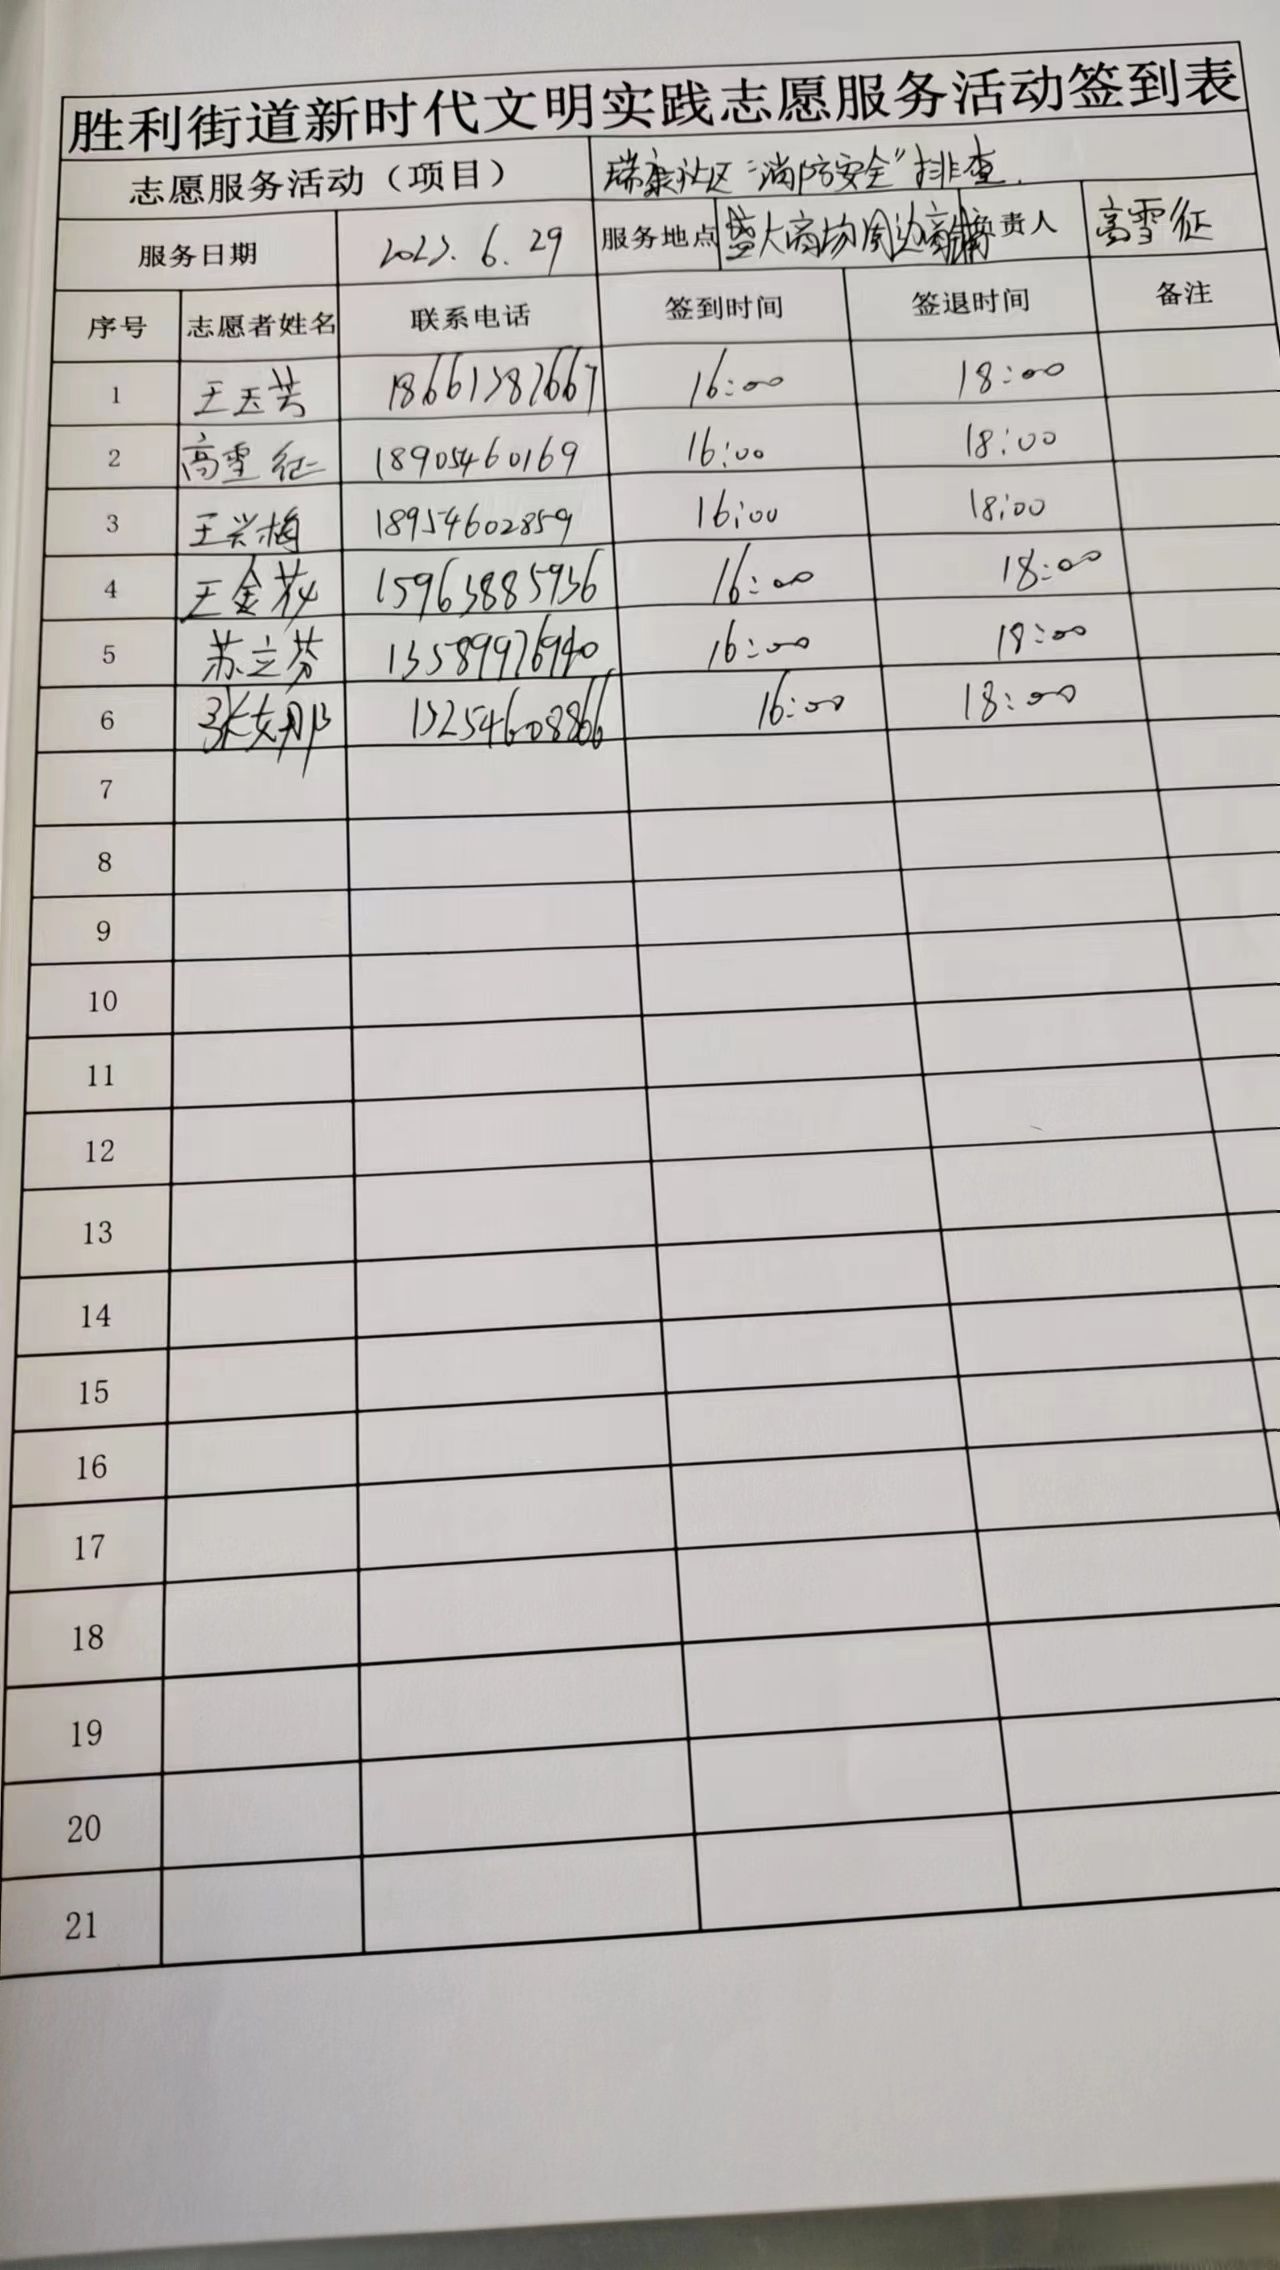 胜利街道新时代文明实践志愿服务活动签到表
志愿服务活动（项目） 瑞康社区“消防安全”排查.
服务日期 2023.6.29 服务地点 盛大商场周边商铺 责人 高雪征
序号 志愿者姓名 联系电话 签到时间 签退时间 备注
1 王玉芸 16:00 18:00
2 高雪征 18905460169 16:00 18:00
3 王兴梅 18954602859 16:00 18:00
4 王金 15963885936 16:00 18:00
5 苏立芬 13589976940 16:00 18:00
6 张女那 13254608866 16:00 18:00
7
8
9
10
11
12
13
14
15
16
17
18
19
20
21